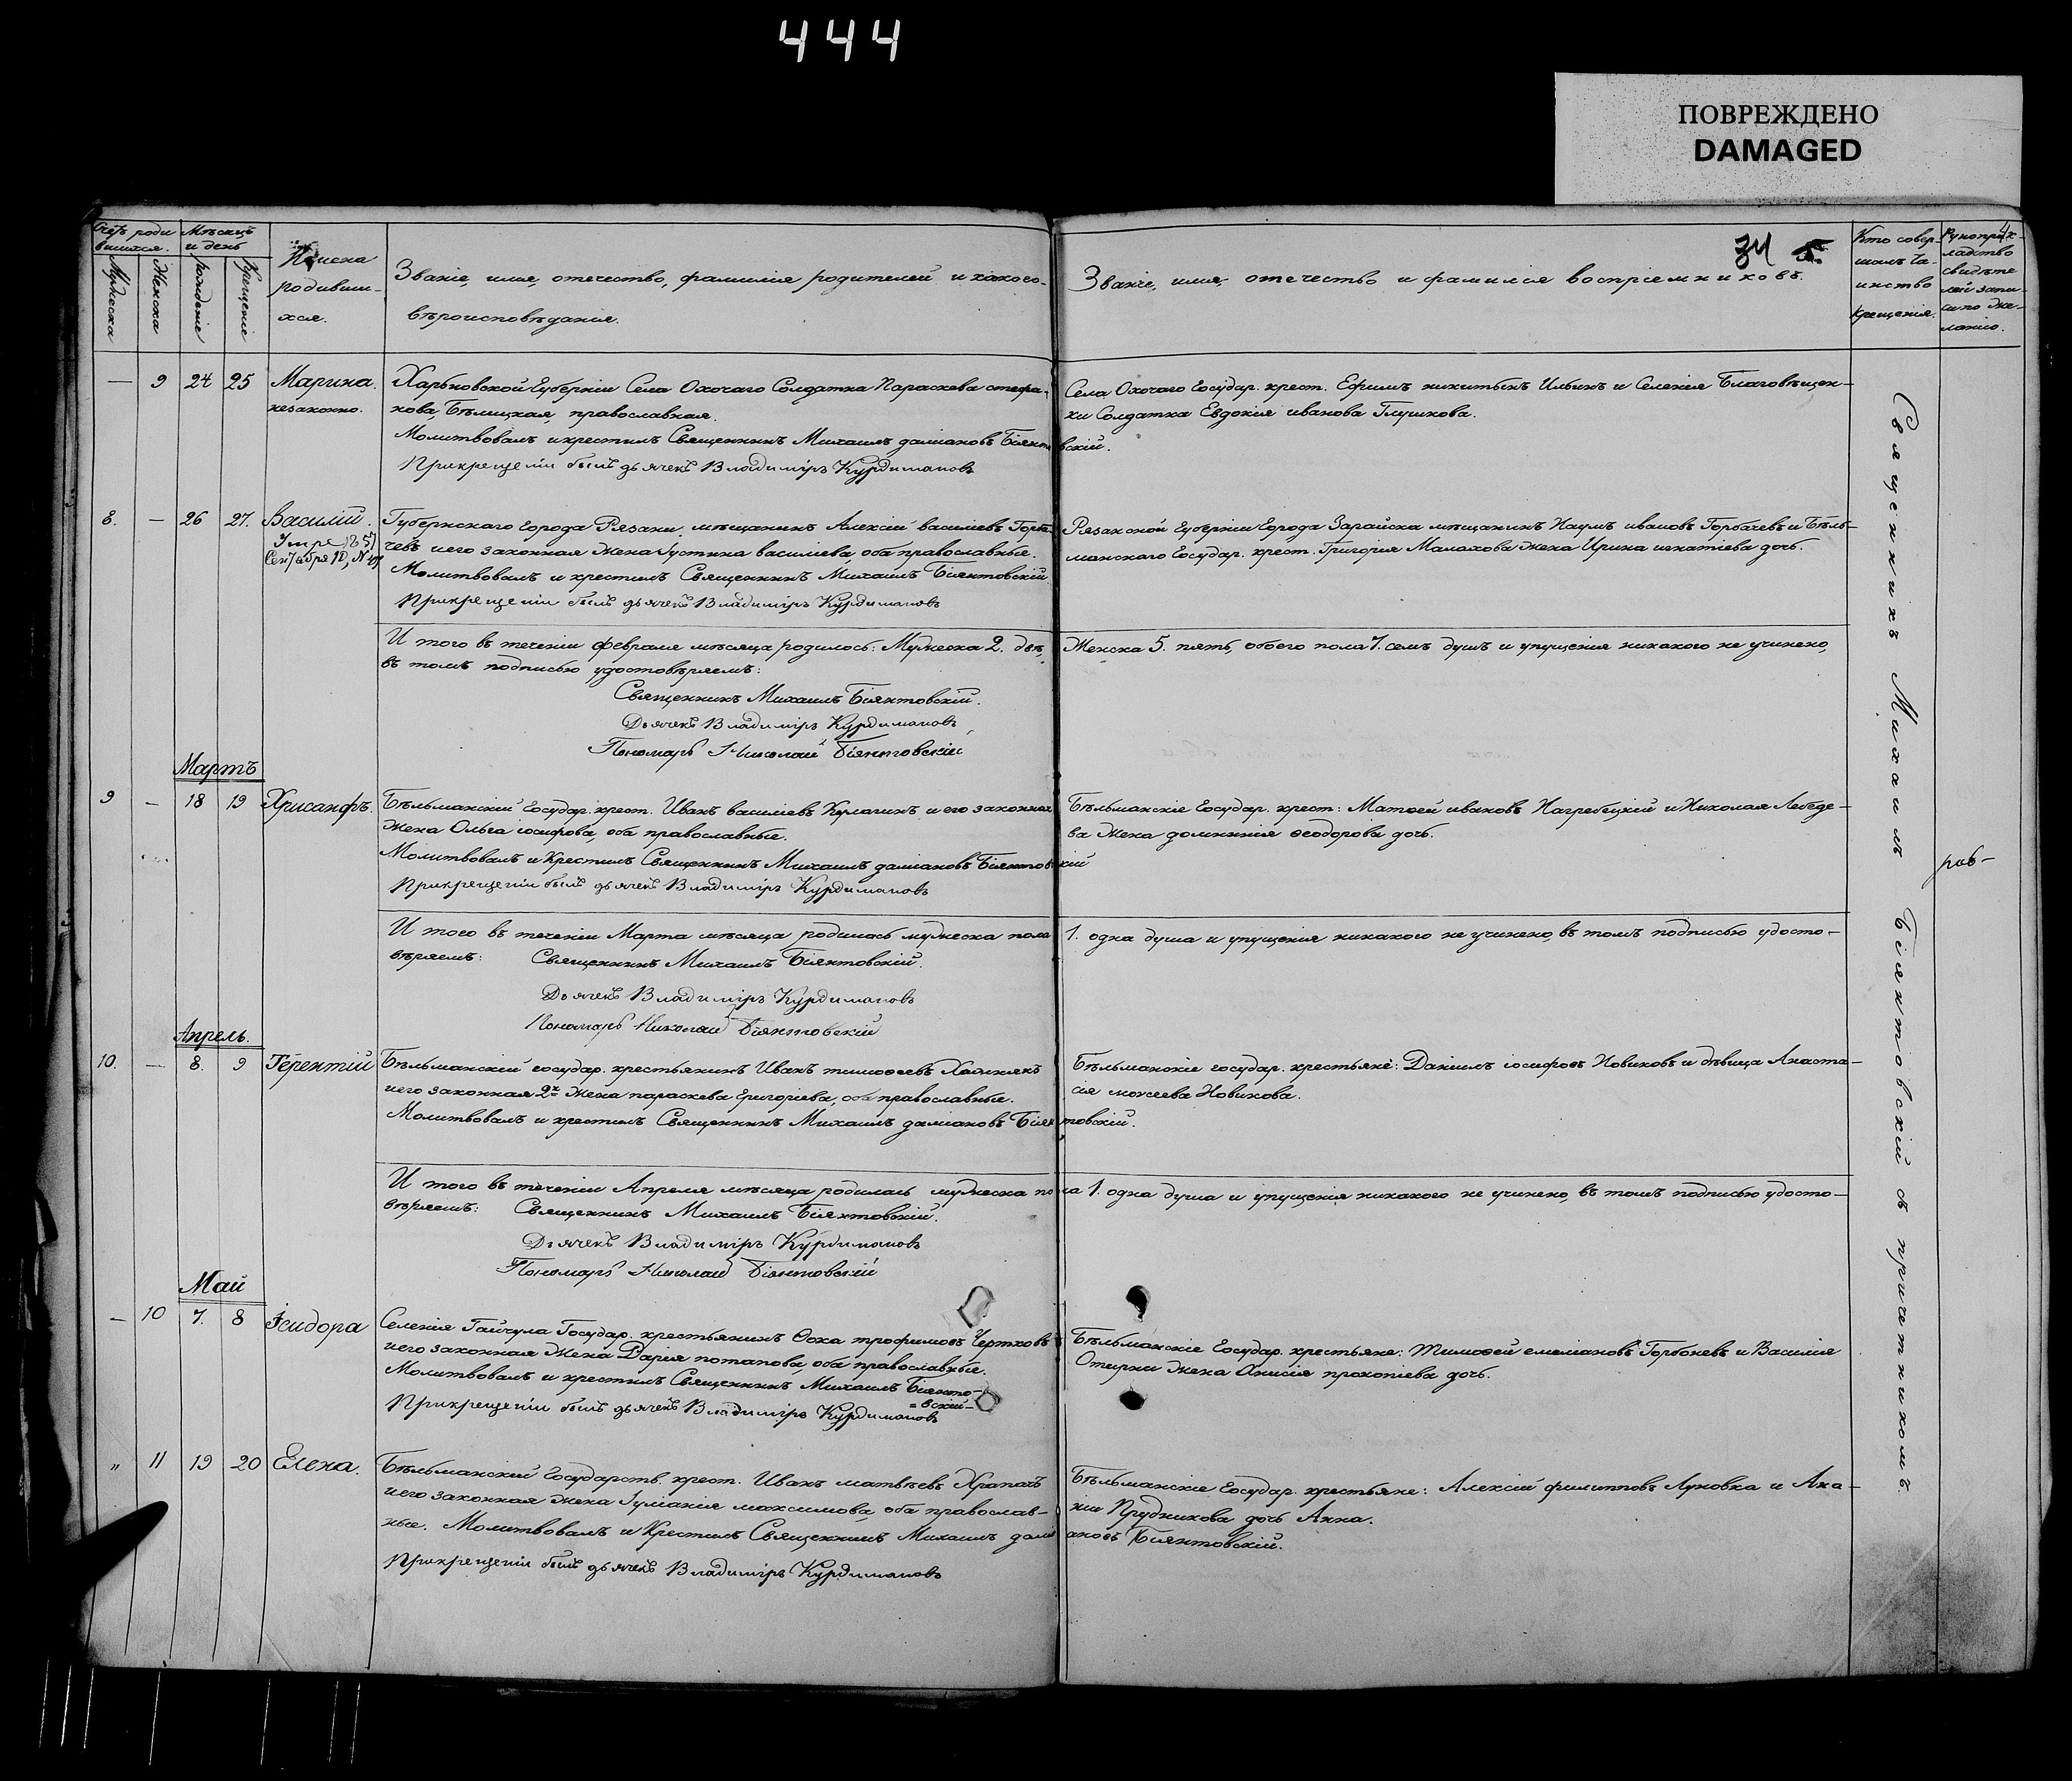 444
ПОВРЕЖДЕНО
DAMAGED
34
Счетъ роди
вшихся.
Мѣсяцъ
и день
Мужеска
Женска
рожденіе
Крещеніе
Имена
родивши-
хся.
Званіе, имя, отечество, фамилія родителей и какого-
вѣроисповѣданія.
Званіе, имя, отечество и фамилія воспріемниковъ.
Кто совер-
шалъ та-
инство
крещенія.
Рукоприк-
ладство
свидѣте
лей запи-
си по же-
ланію.
— 9 24 25 Марина.
незаконно.
Харьковской Губерніи Села Охочаго Солдатка Параскева стефа-
нова Бѣлицкая, православная.
Молитвовалъ и крестилъ Священникъ Михаилъ даміановъ Біянтовскій.
Прикрещеніи былъ дьячекъ Владиміръ Курдимановъ
Села Охочаго Государ. крест. Ефимъ никитинъ Ильинъ и Селенія Благовѣщен-
ки Солдатка Евдокія иванова Глушкова.
8. — 26 27. Василій.
Умре 1851
Сентября 12, №49
Губернскаго города Рязани, мѣщанинъ Алексій василіевъ Горба-
чевъ и его законная жена Іустина василіева, оба православные.
Молитвовалъ и крестилъ Священникъ Михаилъ Біянтовскій.
Прикрещеніи былъ дьячекъ Владиміръ Курдимановъ
Рязанской Губерніи Города Зарайска мѣщанинъ Наумъ ивановъ Горбачевъ и Бѣль-
манскаго Государ. крест. Григорія Малахова жена Ирина игнатіева дочь.
И того въ теченіи февраля мѣсяца родилось: Мужеска 2. двѣ, Женска 5. пять, обоего пола 7. семь душъ и упущенія никакого не учинено,
въ томъ подписью удостовѣряемъ:
Священникъ Михаилъ Біянтовскій.
Дьячекъ Владиміръ Курдимановъ
Пономарь Николай Біянтовскій
Мартъ
9 — 18 19 Хрисанфъ.
Бѣльманскій Государ. крест. Иванъ василіевъ и его законная
жена Ольга іосифова, оба православные.
Молитвовалъ и Крестилъ Священникъ Михаилъ даміановъ Біянтовскій
Прикрещеніи былъ дьячекъ Владиміръ Курдимановъ
Бѣльманскіе Государ. крест: Матѳей ивановъ Нагребецкій и Николая Лебеде-
ва жена домникія ѳеодорова дочь.
И того въ теченіи Марта мѣсяца родилась мужеска пола 1. одна душа и упущенія никакого не учинено, въ томъ подписью удосто-
вѣряемъ: Священникъ Михаилъ Біянтовскій.
Дьячекъ Владиміръ Курдимановъ
Пономарь Николай Біянтовскій
Апрель.
10. — 8. 9 Терентій
Бѣльманскій государ. крестьянинъ Иванъ тимоѳеевъ
и его законная 2я жена параскева григоріева, оба православные.
Молитвовалъ и крестилъ Священникъ Михаилъ даміановъ Біянтовскій.
Бѣльманскіе государ. крестьяне: Даніилъ іосифовъ Новиковъ и дѣвица Анаста-
сія моѵсеева Новикова.
И того въ теченіи Апреля мѣсяца родилась мужеска пола 1. одна душа и упущенія никакого не учинено, въ томъ подписью удосто-
вѣряемъ: Священникъ Михаилъ Біянтовскій.
Дьячекъ Владиміръ Курдимановъ
Пономарь Николай Біянтовскій
Май
— 10 7. 8 Ісидора
Селенія Гайчула Государ. крестьянинъ Ѳока трофимовъ Чертковъ
и его законная жена Дарія потапова, оба православные.
Молитвовалъ и крестилъ Священникъ Михаилъ Біянто-
=вскій-
Прикрещеніи былъ дьячекъ Владиміръ Курдимановъ
Бѣльманскіе Государ. крестьяне: Тимоѳей емеліановъ Горбоневъ и Василія
жена Анисія прокопіева дочь.
„ 11 19 20 Елена.
Бѣльманскій Государств. крест. Иванъ матвѣевъ Храпачъ
и его законная жена Іуліанія максимова, оба православ-
ные. Молитвовалъ и Крестилъ Священникъ Михаилъ даміановъ Біянтовскій.
Прикрещеніи былъ дьячекъ Владиміръ Курдимановъ
Бѣльманскіе Государ. крестьяне: Алексій филипповъ Луновка и Ана-
ніи Прудникова дочь Анна.
Священникъ Михаилъ Біянтовскій съ причетникомъ.
ров-